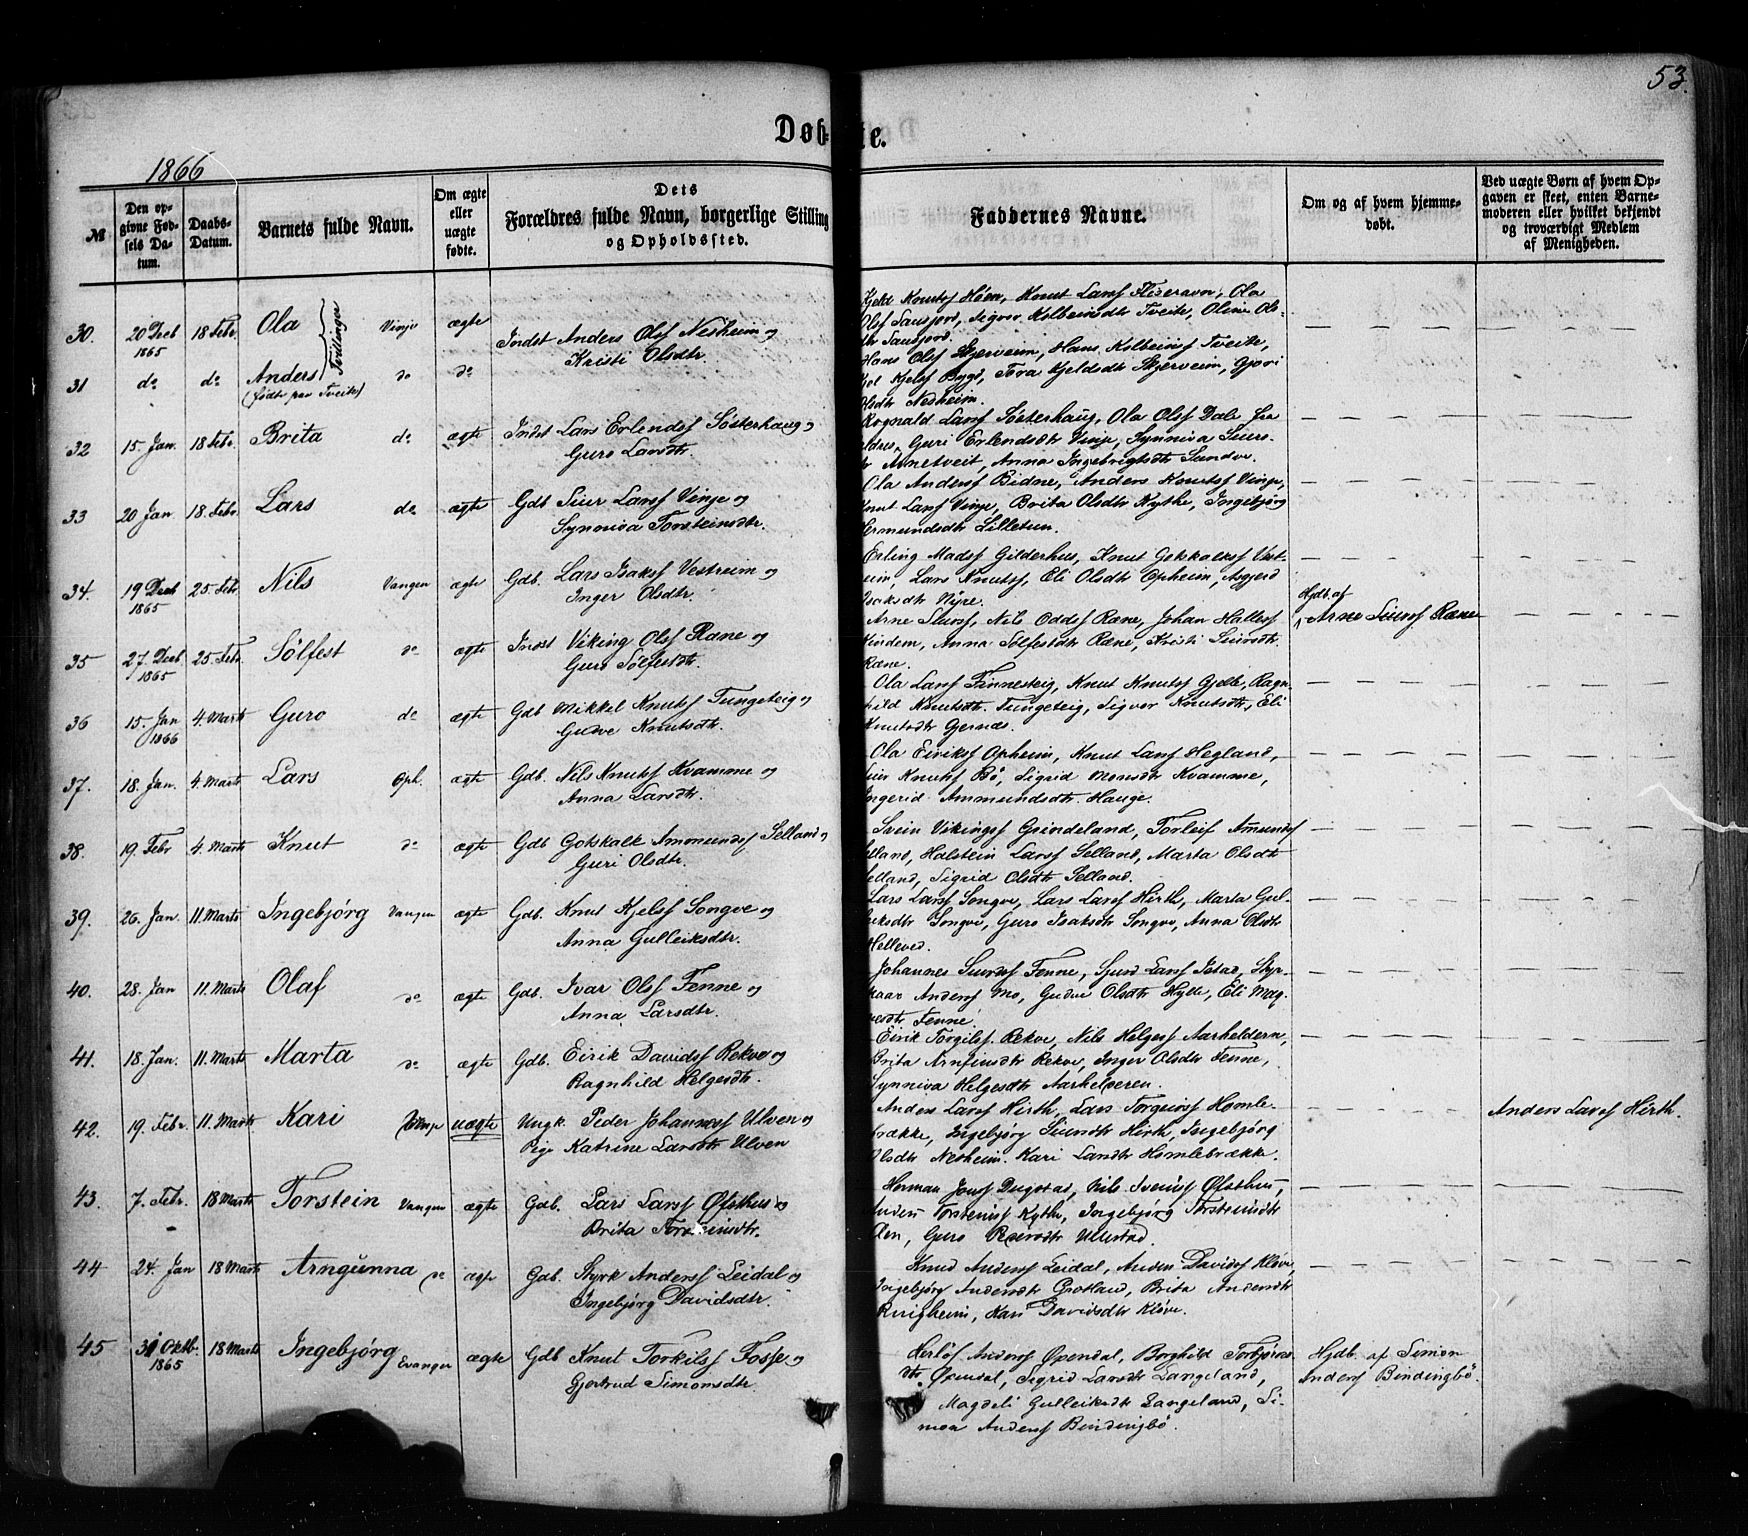 53.
Døb- te.
1866
№
Den op-
givne Fød-
sels Da-
tum.
Daabs-
Datum.
Barnets fulde Navn.
Om ægte
eller
uægte
fødte.
Dets
Forældres fulde Navn, borgerlige Stilling
og Opholdssted.
Faddernes Navne.
Om og af hvem hjemme-
døbt.
Ved uægte Børn af hvem Op-
gaven er skeet, enten Barne-
moderen eller hvilket bekjendt
og troværdigt Medlem
af Menigheden.
30. 20 Decb 1865 18 Febr. Ola Tvillinger Vinje ægte Indst Anders Olsf Nesheim og
Kristi Olsdtr.
31 do do Anders do do
(født paa Tveite)
Knut Larsf
Ola
Olsf Sausjord, Sigvor Kolbeinsdtr Tveite, Oline Ols-
dtr Sausjord.
Hans Olsf Skjerveim, Hans Kolbeinsf Tveite,
Kjelsf Bygd, Tora Kjeldsdtr Skjerveim, Gjori
Olsdtr Nesheim.
32 15. Jan. 18 Febr. Brita do ægte Indst Lars Erlendsf Søsterhaug og
Guro Larsdtr.
Rognald Larsf Søsterhaug, Ola Olsf Dale fra
Guri Erlendsdtr Vinje, Synniva Siurs-
dtr Arnetveit, Anna Ingebrigtsdtr Sundve.
33 20 Jan 18. Febr. Lars do ægte Gdb Siur Larsf Vinje og
Synniva Torsteinsdtr.
Ola Andersf Bidne, Anders Knutsf Vinje,
Knut Larsf Vinje, Brita Olsdtr Kythe, Ingebjørg
Ermundsdtr Lilletun.
34. 19 Decb 1865 25. Febr. Nils Vangen ægte Gdb. Lars Isaksf Vestreim og
Inger Olsdtr.
Erling Madsf Gilderhus, Knut Gotskalksf Vest-
reim, Lars Knutsf, Eli Olsdtr Opheim, Asgjerd
Isaksdtr Nyre.
35 27. Decb. 1865 25. Febr. Sølfest do ægte Indst Viking Olsf Ræne og
Guro Sølfestdtr.
Arne Siursf, Nils Oddsf Ræne, Johan Hallesf
Kindem, Anna Sølfestdtr Ræne, Kristi Siursdtr.
Ræne.
Hjdb. af
Arne Siursf Ræne
36 15. Jan 1866 4. Marts Guro do ægte Gdb Mikkel Knutsf Tungeteig og
Gudve Knutsdtr.
Ola Larsf Finnesteig, Knut Knutsf Gjelle, Ragn-
hild Knutsdtr. Tungeteig, Sigvor Knutsdtr, Eli
Knutsdtr Gjernæs.
37. 18. Jan. 4. Marts Lars Oph. ægte Gdb. Nils Knutsf Kvamme og
Anna Larsdtr.
Ola Eiriksf Opheim, Knut Larsf Hegland,
Siur Knutsf Bø, Sigrid Monsdtr Kvamme,
Ingerid Ammundsdtr. Hauge.
38. 19. Febr 4. Marts Knut do ægte Gdb Gotskalk Ammundsf Selland og
Guri Olsdtr.
Svein Vikingsf Grindeland, Torleif Amundsf
Selland, Halstein Larsf Selland, Marta Olsdtr
Selland, Sigrid Olsdtr Selland.
39. 26. Jan. 11. Marts Ingebjørg Vangen ægte Gdb. Knut Kjelsf Songve og
Anna Gulleiksdtr.
Lars Larsf Songve, Lars Larsf Hirth, Marta Gul-
leiksdtr Songve, Guro Isaksdtr Songve, Anna Olsdtr
Helleved.
40. 28. Jan 11. Marts Olaf do ægte Gdb. Ivar Olsf Fenne og
Anna Larsdtr.
Johannes Siursf Fenne, Sjurd Larsf Istad, Styr-
kaar Andersf Mo, Gudve Olsdtr Hylle, Eli Mag-
nesdtr Fenne.
41. 18. Jan. 11. Marts Marta do ægte Gdb. Eirik Davidsf Rekve og
Ragnhild Helgesdtr.
Eirik Torgilsf Rekve, Nils Helgesf Aarhelderen,
Brita Arnfinsdtr Rekve, Inger Olsdtr Fenne,
Synniva Helgesdtr Aarhelderen.
42. 19. Febr. 11. Marts Kari Vinje uægte Ungk. Peder Johannesf Ulven og
Pige Katrine Larsdtr Ulven
Anders Larsf Hirth, Lars Torgeirsf Homle-
brække, Ingebjørg Siursdtr Hirth, Ingebjørg
Olsdtr Nesheim, Kari Larsdtr Homlebrække.
Anders Larsf Hirth.
43. 7. Febr. 18 Marts Torstein Vangen ægte Gdb. Lars Larsf Øfsthus og
Brita Torsteinsdtr.
Herman Jonsf Dugstad, Nils Iversf Øfsthus,
Anders Torsteinsf Kythe, Ingebjørg Torsteinsdtr
Guro Ullestad.
44 24. Jan 18 Marts Arngunna do ægte Gdb. Styrk Andersf Leidal og
Ingebjørg Davidsdtr.
Knud Andersf Leidal, Anders Davidsf Kløve,
Ingebjørg Andersdtr Grotland, Brita Andersdtr
Ringheim, Kari Davidsdtr Kløve.
45 31 Oktb. 1865 18 Marts Ingebjørg Evanger ægte Gdb Knut Torkilsf Fosse og
Gjertrud Simonsdtr.
Herlof Andersf Øvsdal, Borghild Torbjørns-
dtr Øvsdal, Sigrid Larsdtr Langeland,
Magdeli Gulleiksdtr Langeland, Si-
mon Andersf Bindingbø.
Hjdb. af Simon
Andersf Bindingbø.